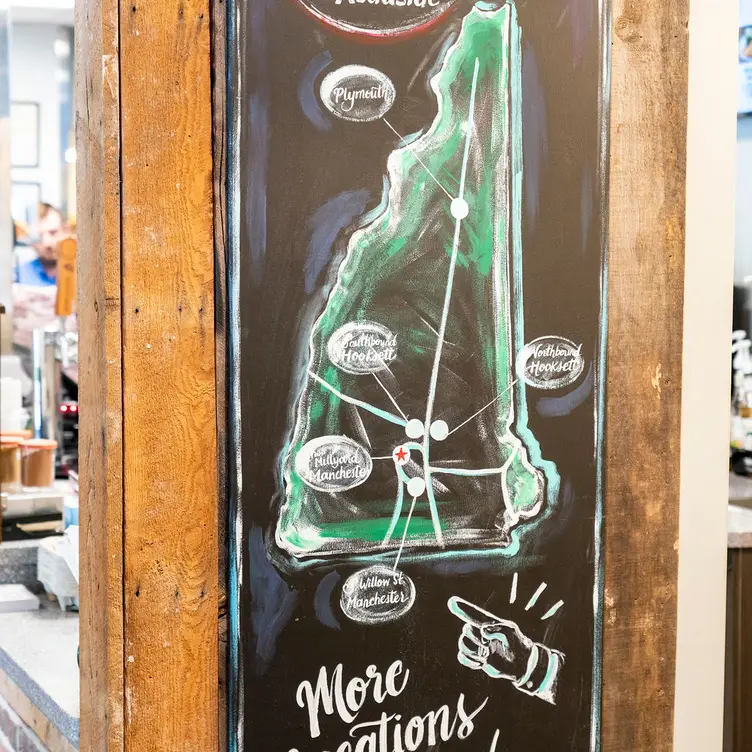 Roadside
Plymouth
Southbound
Hooksett
Northbound
Hooksett
Millyard
Manchester
S. Willow St.
Manchester
More
Locations